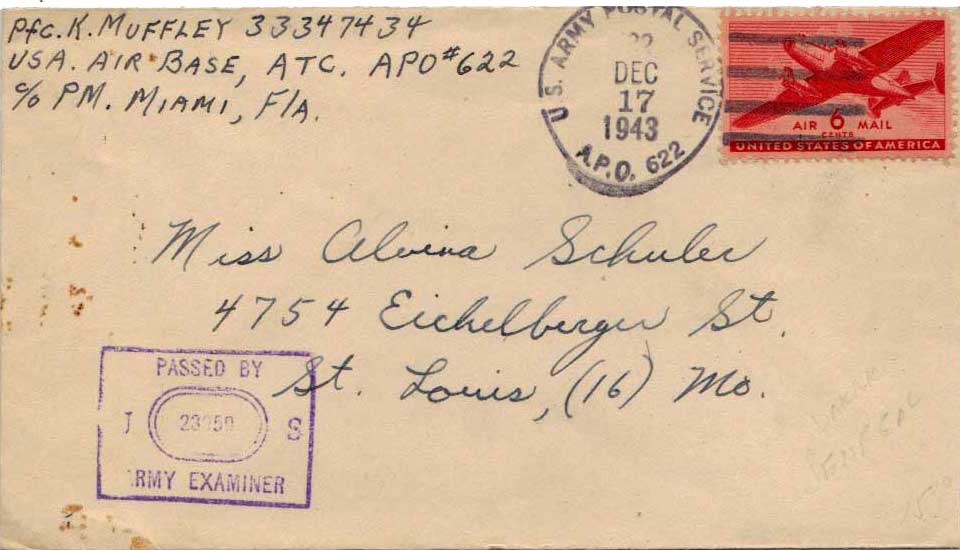 Pfc. K. MUFFLEY 33347434
USA. AIR BASE, ATC. APO #622
c/o PM. MIAMI, FlA.
U.S. ARMY POSTAL SERVICE
DEC
17
1943
A.P.O. 622
AIR 6 MAIL
CENTS
UNITED STATES OF AMERICA
Miss Alvina Schuler
4754 Eichelberger St.
St. Louis, (16) Mo.
PASSED BY
S
ARMY EXAMINER